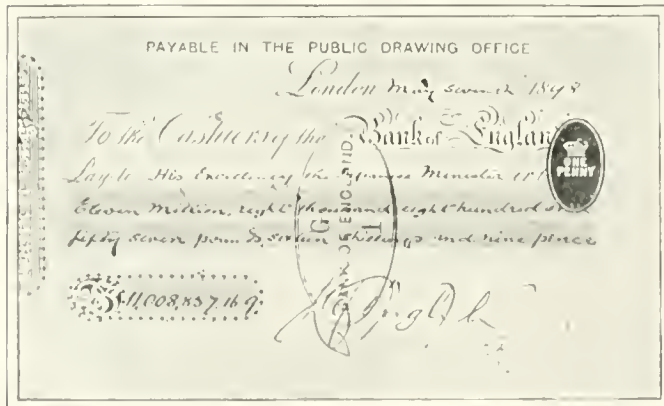 PAYABLE IN THE PUBLIC DRAWING OFFICE
London May seventh 1898
To the Cashiers of the Bank of England
Pay to His Excellency the Japanese Minister
Eleven Million, eight thousand eight hundred and
fifty seven pounds sixteen shillings and nine pence
£11,008,857.16.9
BANK OF ENGLAND
ONE
PENNY